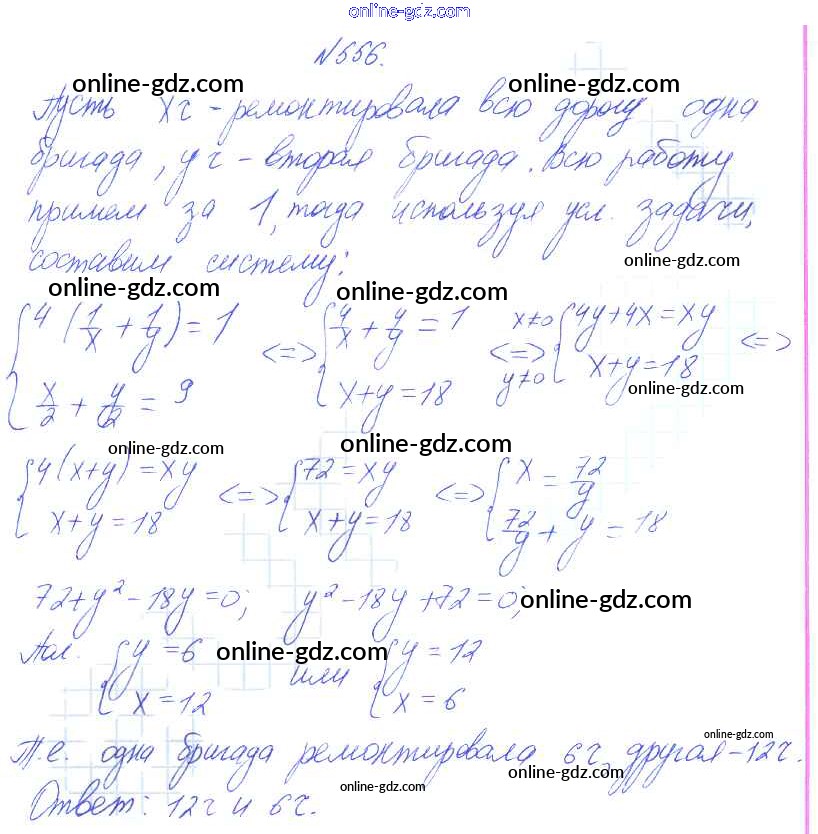 online-gdz.com
№556.
online-gdz.com online-gdz.com
Пусть xч - ремонтировала всю дорогу одна
бригада, yч - вторая бригада. Всю работу
примем за 1, тогда используя усл. задачи,
составим систему: online-gdz.com
online-gdz.com online-gdz.com
{ 4 (1/x + 1/y) = 1 <=> { 4/x + 4/y = 1 x≠0 <=> y≠0 { 4y+4x=xy <=>
{ x/2 + y/2 = 9 { x+y=18 { x+y=18
online-gdz.com
online-gdz.com online-gdz.com
{ 4(x+y)=xy <=> { 72=xy <=> { x = 72/y
{ x+y=18 { x+y=18 { 72/y + y = 18
72+y²-18y=0; y²-18y+72=0; online-gdz.com
{ y=6 online-gdz.com или { y=12
{ x=12 { x=6
online-gdz.com
Т.е. одна бригада ремонтировала 6ч, другая-12ч.
online-gdz.com
online-gdz.com
Ответ: 12ч и 6ч.